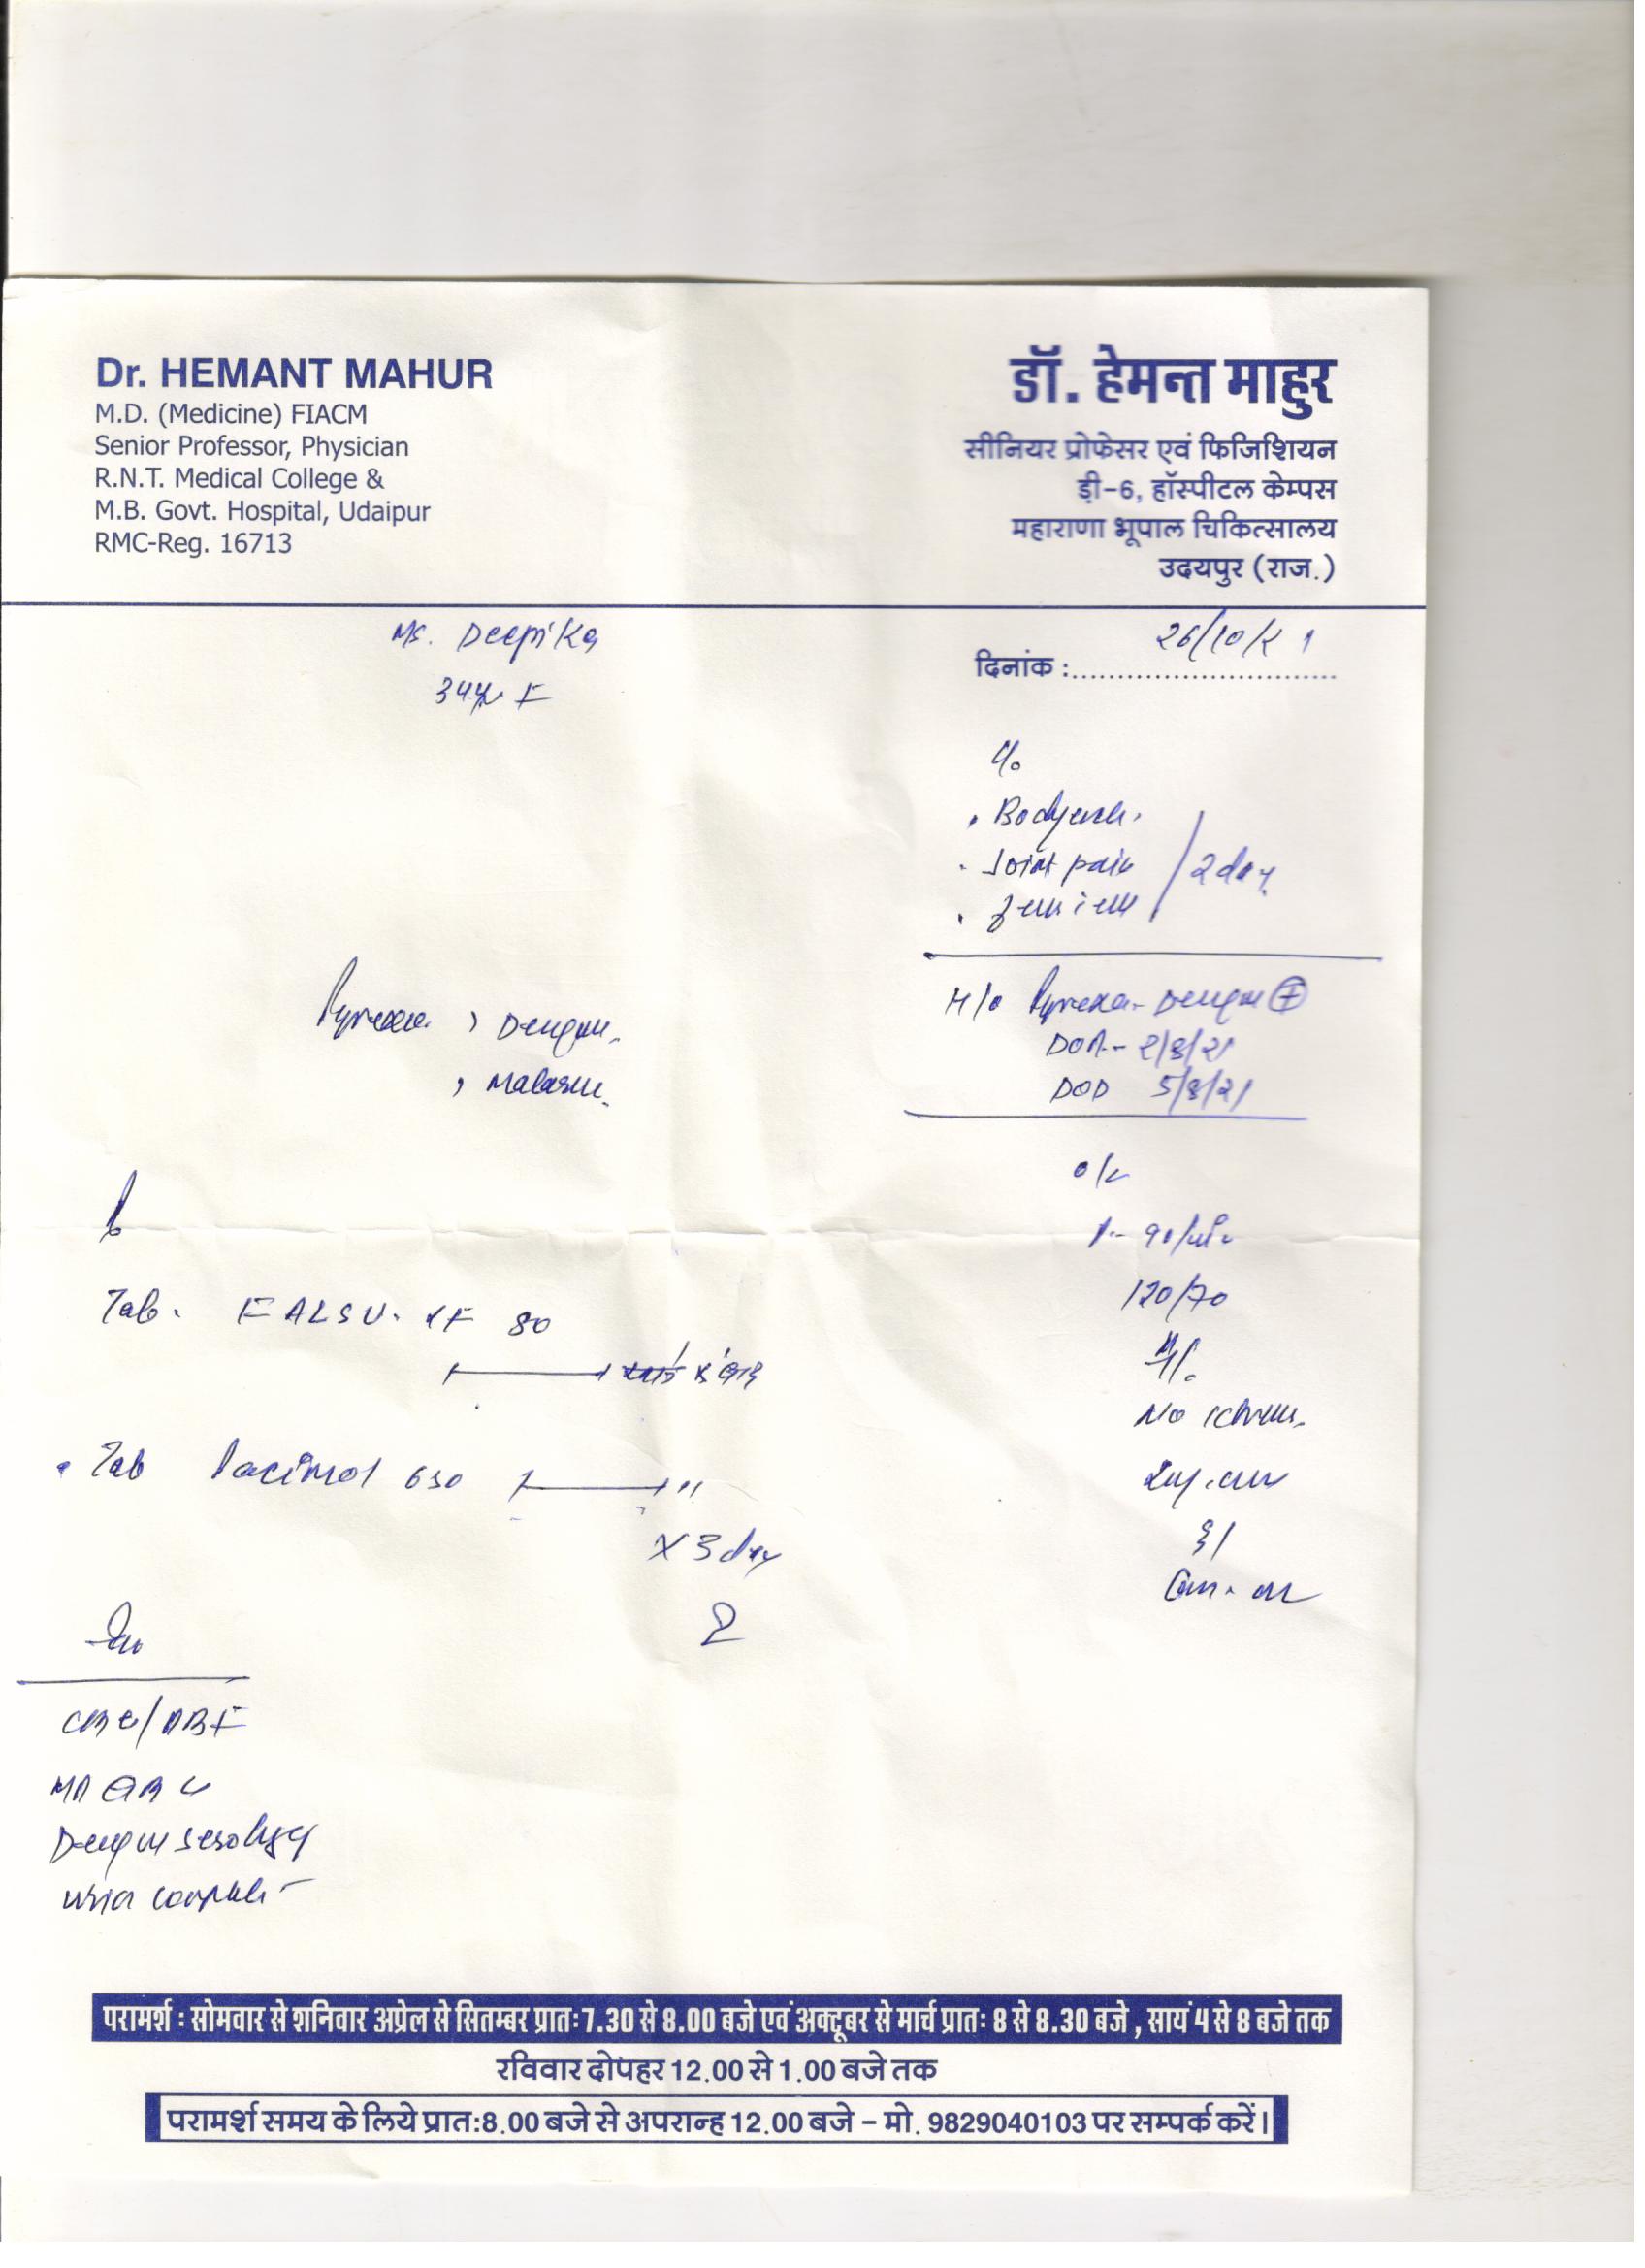 Dr. HEMANT MAHUR
M.D. (Medicine) FIACM
Senior Professor, Physician
R.N.T. Medical College &
M.B. Govt. Hospital, Udaipur
RMC-Reg. 16713
डॉ. हेमन्त माहुर
सीनियर प्रोफेसर एवं फिजिशियन
ड़ी-6, हॉस्पीटल केम्पस
महाराणा भूपाल चिकित्सालय
उदयपुर (राज.)
Ms. Deepika
34 yr F
दिनांक : 26/10/21
c/o
Bodyache
Joint pain
2 day
H/o Pyrexia - Dengue +
DOA - 2/8/21
DOD 5/8/21
Pyrexia , Dengue
, Malaria
o/e
P - 90/min
120/70
No icterus
Tab. FALSU. XF 80
Tab Pacimol 650 "
x 3 day
Inv
CBC/PBF
MP QBC
Dengue serology
urine complete
परामर्श : सोमवार से शनिवार अप्रेल से सितम्बर प्रातः 7.30 से 8.00 बजे एवं अक्टूबर से मार्च प्रातः 8 से 8.30 बजे , सायं 4 से 8 बजे तक
रविवार दोपहर 12.00 से 1.00 बजे तक
परामर्श समय के लिये प्रात:8.00 बजे से अपरान्ह 12.00 बजे – मो. 9829040103 पर सम्पर्क करें।